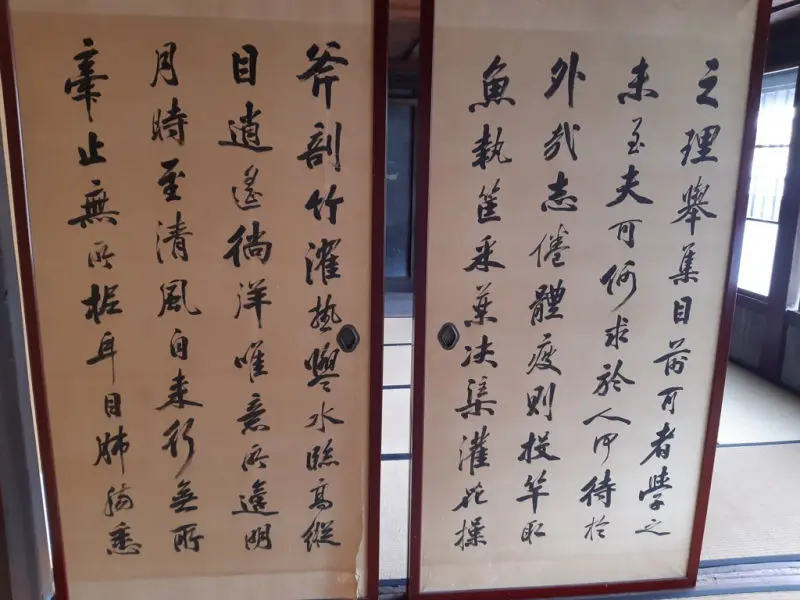 之理舉集目前可者學之
未至夫可何求於人何待於
外哉志倦體疲則投竿取
魚執筐采藥决渠灌花操
斧剖竹濯熱盥水臨高縱
目逍遙徜洋唯意所適明
月時至清風自来行無所
牽止無所柅耳目肺腸悉